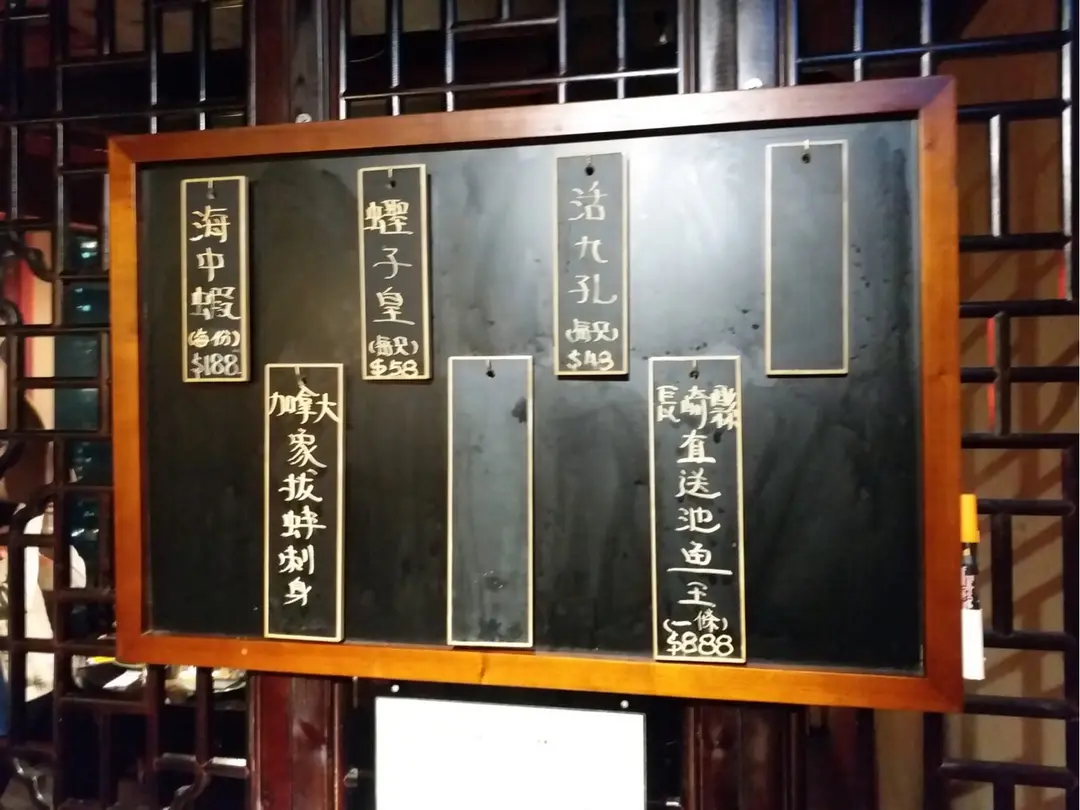 海中蝦
(每份)
$188
蟶子皇
(每只)
$58
活九孔
(每只)
$48
加拿大
象拔蚌刺身
長崎
直送池魚王
(一條)
$888